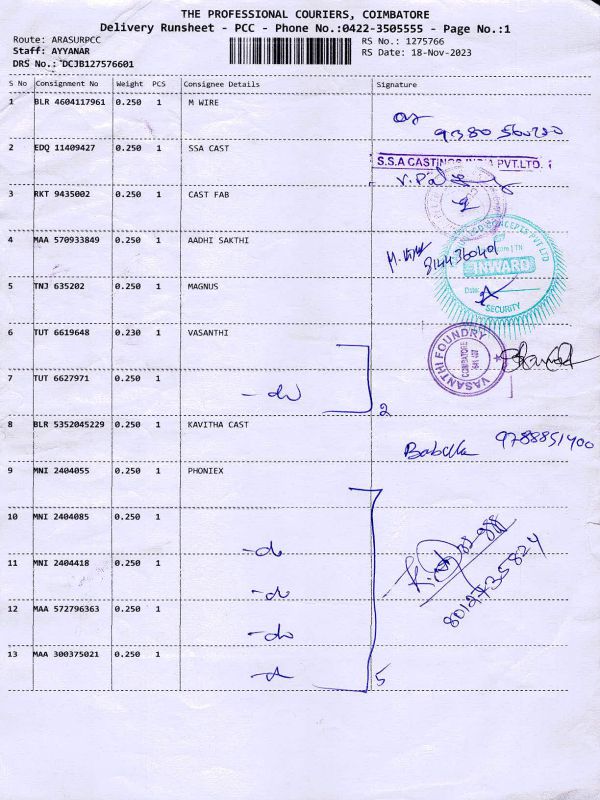 THE PROFESSIONAL COURIERS, COIMBATORE
Delivery Runsheet - PCC - Phone No.:0422-3505555 - Page No.:1
Route: ARASURPCC
RS No.: 1275766
Staff: AYYANAR
RS Date: 18-Nov-2023
DRS No.: DCJB127576601
S No Consignment No Weight PCS Consignee Details Signature
1 BLR 4604117961 0.250 1 M WIRE
9380 560220
2 EDQ 11409427 0.250 1 SSA CAST
S.S.A CASTINGS INDIA PVT.LTD.
3 RKT 9435002 0.250 1 CAST FAB
4 MAA 570933849 0.250 1 AADHI SAKTHI
INWARD
Date:
SECURITY
5 TNJ 635202 0.250 1 MAGNUS
6 TUT 6619648 0.230 1 VASANTHI
VASANTHI FOUNDRY
COIMBATORE
7 TUT 6627971 0.250 1
-do
2
8 BLR 5352045229 0.250 1 KAVITHA CAST
9788851400
9 MNI 2404055 0.250 1 PHONIEX
10 MNI 2404085 0.250 1
-do
11 MNI 2404418 0.250 1
-do
8012735824
12 MAA 572796363 0.250 1
-do
13 MAA 300375021 0.250 1
5